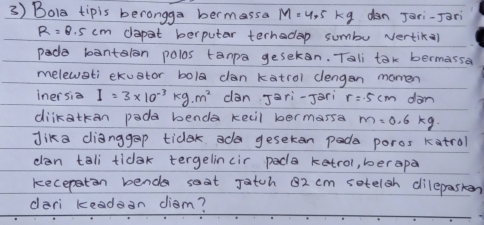 3) Bola tipis berongga bermassa M = 4,5 kg dan Jari-Jari
R = 8.5 cm dapat berputar terhadap sumbu vertikal
pada bantalan polos tanpa gesekan. Tali tak bermassa
melewati ekuator bola dan katrol dengan momen
inersia I = 3 x 10⁻³ kg.m² dan Jari-jari r = 5 cm dan
diikatkan pada benda kecil bermassa m = 0.6 kg.
Jika dianggap tidak ada gesekan pada poros katrol
dan tali tidak tergelincir pada katrol, berapa
kecepatan benda saat jatuh 82 cm setelah dilepaskan
dari keadaan diam?